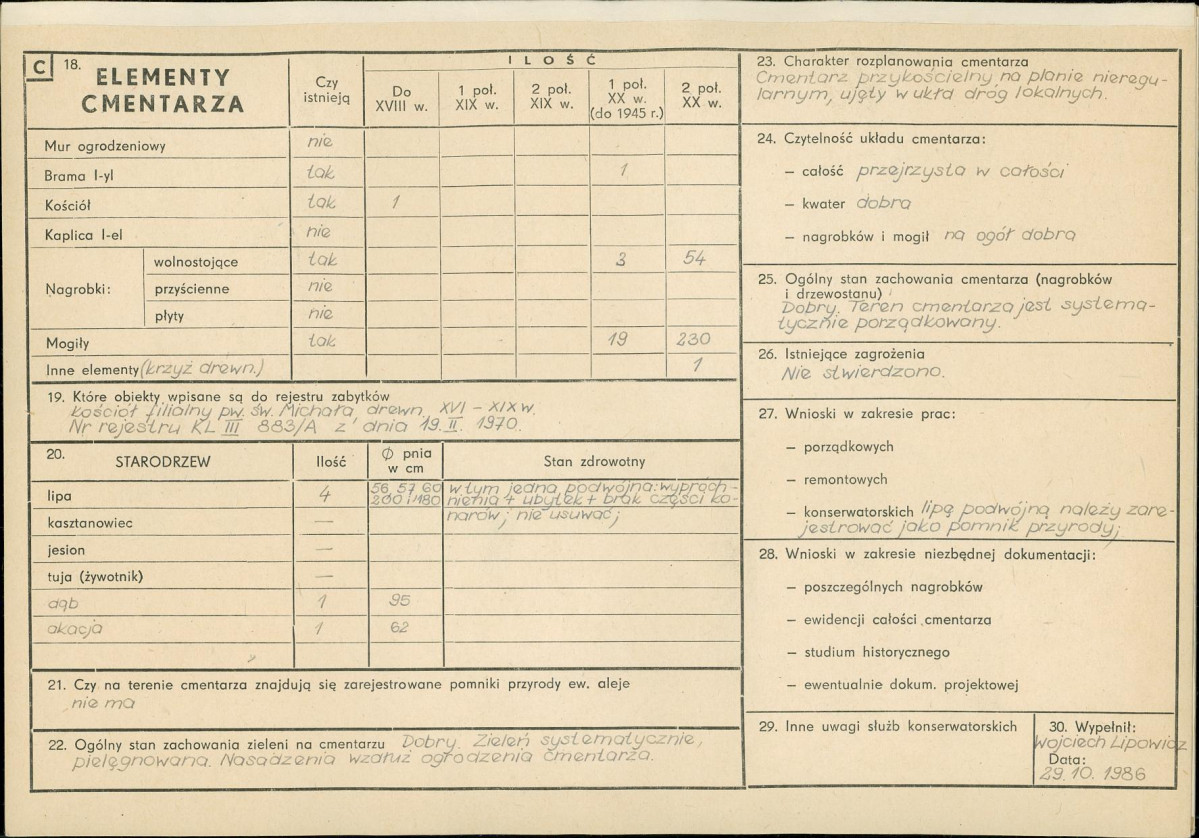 C 18. ELEMENTY CMENTARZA
Czy istnieją
ILOŚĆ
Do XVIII w.
1 poł. XIX w.
2 poł. XIX w.
1 poł. XX w. (do 1945 r.)
2 poł. XX w.
Mur ogrodzeniowy nie
Brama I-yl tak 1
Kościół tak 1
Kaplica I-el nie
Nagrobki:
wolnostojące tak 3 54
przyścienne nie
płyty nie
Mogiły tak 19 230
Inne elementy (krzyż drewn.) 1
19. Które obiekty wpisane są do rejestru zabytków
Kościół filialny pw. św. Michała, drewn. XVI – XIX w.
Nr rejestru KL III 883/A z dnia 19. II. 1970.
20. STARODRZEW Ilość Ø pnia w cm Stan zdrowotny
lipa 4 56 57 60 w tym jedna podwójna: wypróch-
200 i 180 nienia + ubytek + brak części ko-
kasztanowiec — narów; nie usuwać;
jesion —
tuja (żywotnik) —
dąb 1 95
akacja 1 62
21. Czy na terenie cmentarza znajdują się zarejestrowane pomniki przyrody ew. aleje
nie ma
22. Ogólny stan zachowania zieleni na cmentarzu Dobry. Zieleń systematycznie,
pielęgnowana. Nasadzenia wzdłuż ogrodzenia cmentarza.
23. Charakter rozplanowania cmentarza
Cmentarz przykościelny na planie nieregu-
larnym, ujęty w ukła dróg lokalnych.
24. Czytelność układu cmentarza:
— całość przejrzysta w całości
— kwater dobra
— nagrobków i mogił na ogół dobra
25. Ogólny stan zachowania cmentarza (nagrobków
i drzewostanu)
Dobry. Teren cmentarza jest systema-
tycznie porządkowany.
26. Istniejące zagrożenia
Nie stwierdzono.
27. Wnioski w zakresie prac:
— porządkowych
— remontowych
— konserwatorskich lipę podwójną należy zare-
jestrować jako pomnik przyrody;
28. Wnioski w zakresie niezbędnej dokumentacji:
— poszczególnych nagrobków
— ewidencji całości cmentarza
— studium historycznego
— ewentualnie dokum. projektowej
29. Inne uwagi służb konserwatorskich
30. Wypełnił:
Wojciech Lipowicz
Data:
29. 10. 1986